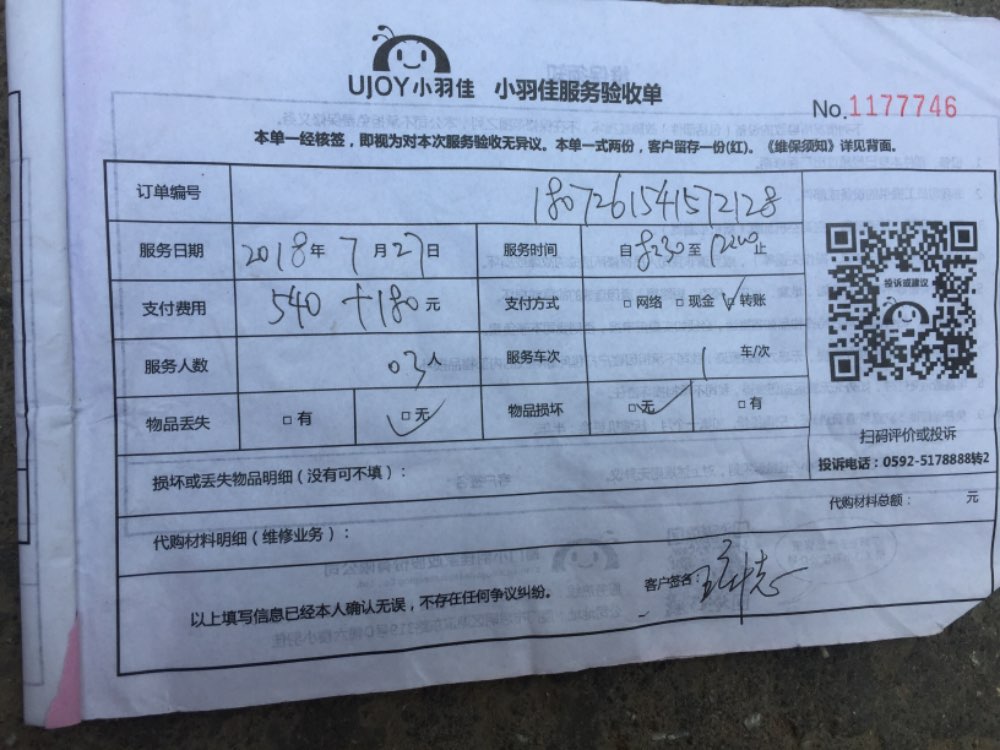 UJOY小羽佳 小羽佳服务验收单
No.1177746
本单一经核签，即视为对本次服务验收无异议。本单一式两份，客户留存一份(红)。《维保须知》详见背面。
订单编号 1807261541572128
服务日期 2018年7月27日 服务时间 自8:30至12:00止
支付费用 540+180元 支付方式 □网络 □现金 ☑转账
服务人数 03人 服务车次 1 车/次
物品丢失 □有 ☑无 物品损坏 ☑无 □有
投诉或建议
扫码评价或投诉
投诉电话：0592-5178888转2
损坏或丢失物品明细（没有可不填）：
代购材料明细（维修业务）：
代购材料总额： 元
以上填写信息已经本人确认无误，不存在任何争议纠纷。
客户签名：